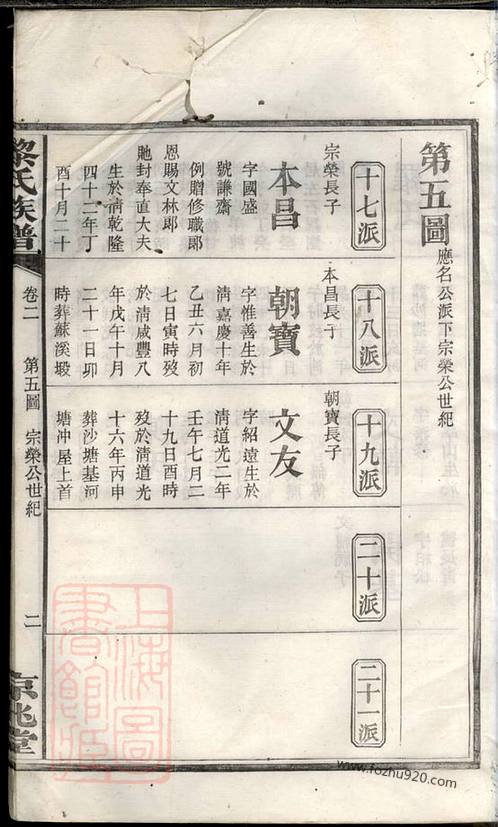 第五圖
應名公派下宗榮公世紀
十七派
宗榮長子
本昌
字國盛
號謙齋
例贈修職郎
恩賜文林郎
貤封奉直大夫
生於清乾隆
四十二年丁
酉十月二十
十八派
本昌長子
朝寶
字惟善生於
清嘉慶十年
乙丑六月初
七日寅時歿
於清咸豐八
年戊午十月
二十一日卯
時葬蘇溪塅
十九派
朝寶長子
文友
字紹遠生於
清道光二年
壬午七月二
十九日酉時
歿於清道光
十六年丙申
葬沙塘基河
塘冲屋上首
二十派
二十一派
黎氏族譜
卷二
第五圖
宗榮公世紀
二
京兆堂
上海圖
書館藏
www.fozhu920.com